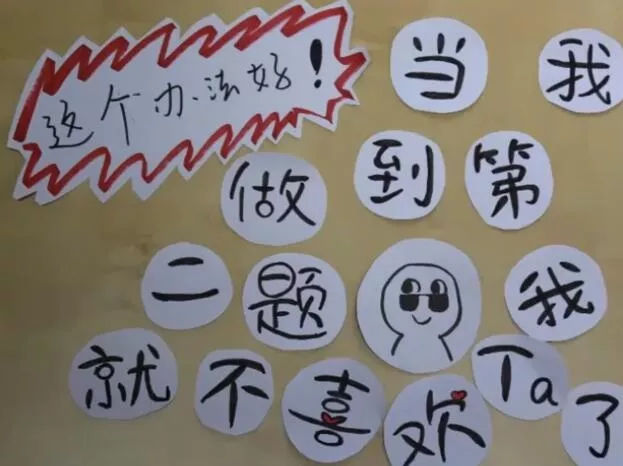 这个办法好！
当我
做到第
二题我
就不喜欢Ta了